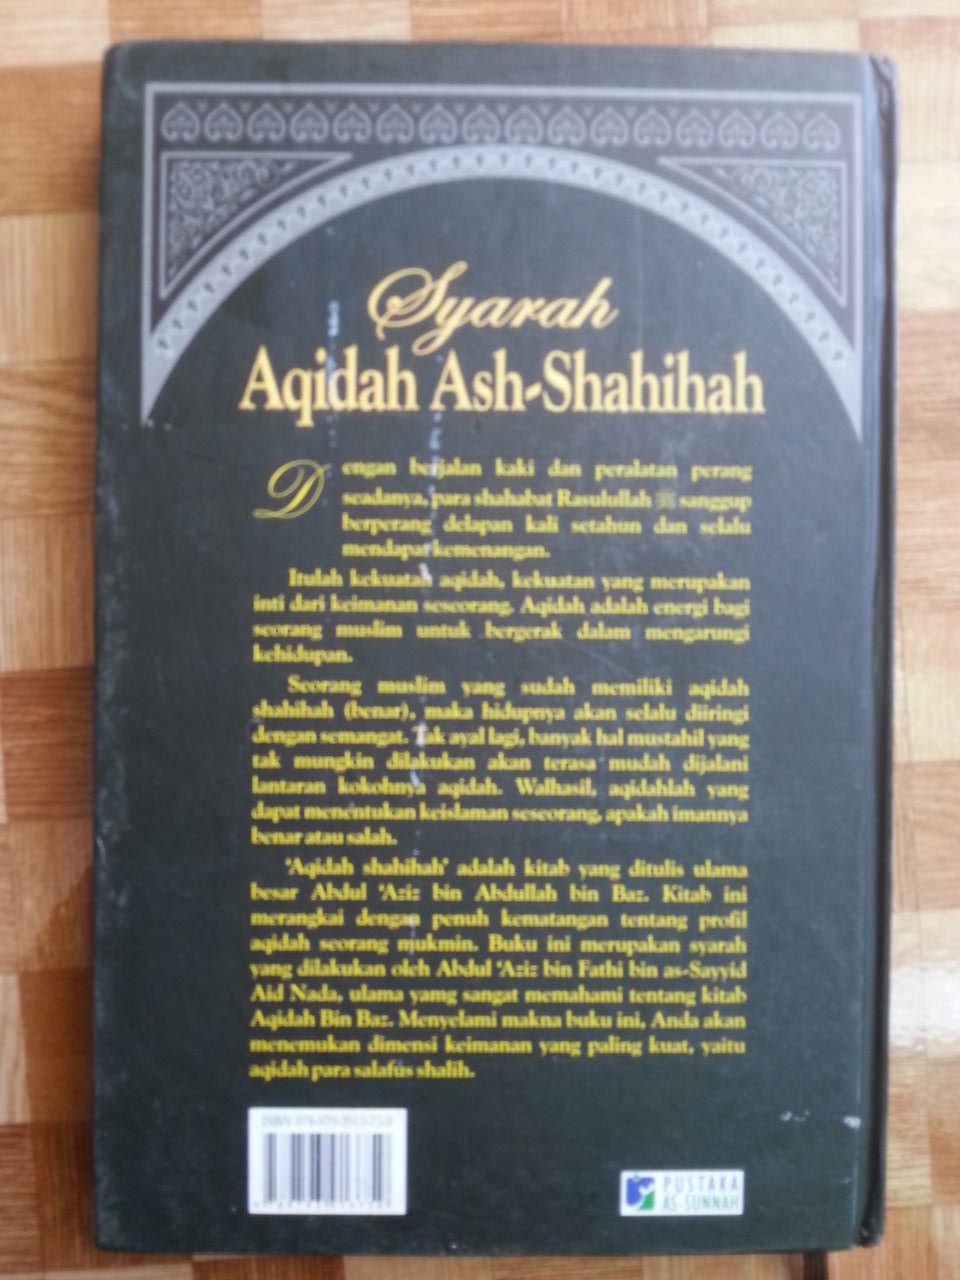 Syarah
Aqidah Ash-Shahihah
Dengan berjalan kaki dan peralatan perang
seadanya, para shahabat Rasulullah ﷺ sanggup
berperang delapan kali setahun dan selalu
mendapat kemenangan.
Itulah kekuatan aqidah, kekuatan yang merupakan
inti dari keimanan seseorang. Aqidah adalah energi bagi
seorang muslim untuk bergerak dalam mengarungi
kehidupan.
Seorang muslim yang sudah memiliki aqidah
shahihah (benar), maka hidupnya akan selalu diiringi
dengan semangat. Tak ayal lagi, banyak hal mustahil yang
tak mungkin dilakukan akan terasa mudah dijalani
lantaran kokohnya aqidah. Walhasil, aqidahlah yang
dapat menentukan keislaman seseorang, apakah imannya
benar atau salah.
'Aqidah shahihah' adalah kitab yang ditulis ulama
besar Abdul 'Aziz bin Abdullah bin Baz. Kitab ini
merangkai dengan penuh kematangan tentang profil
aqidah seorang mukmin. Buku ini merupakan syarah
yang dilakukan oleh Abdul 'Aziz bin Fathi bin as-Sayyid
Aid Nada, ulama yamg sangat memahami tentang kitab
Aqidah Bin Baz. Menyelami makna buku ini, Anda akan
menemukan dimensi keimanan yang paling kuat, yaitu
aqidah para salafus shalih.
ISBN
PUSTAKA
AS-SUNNAH